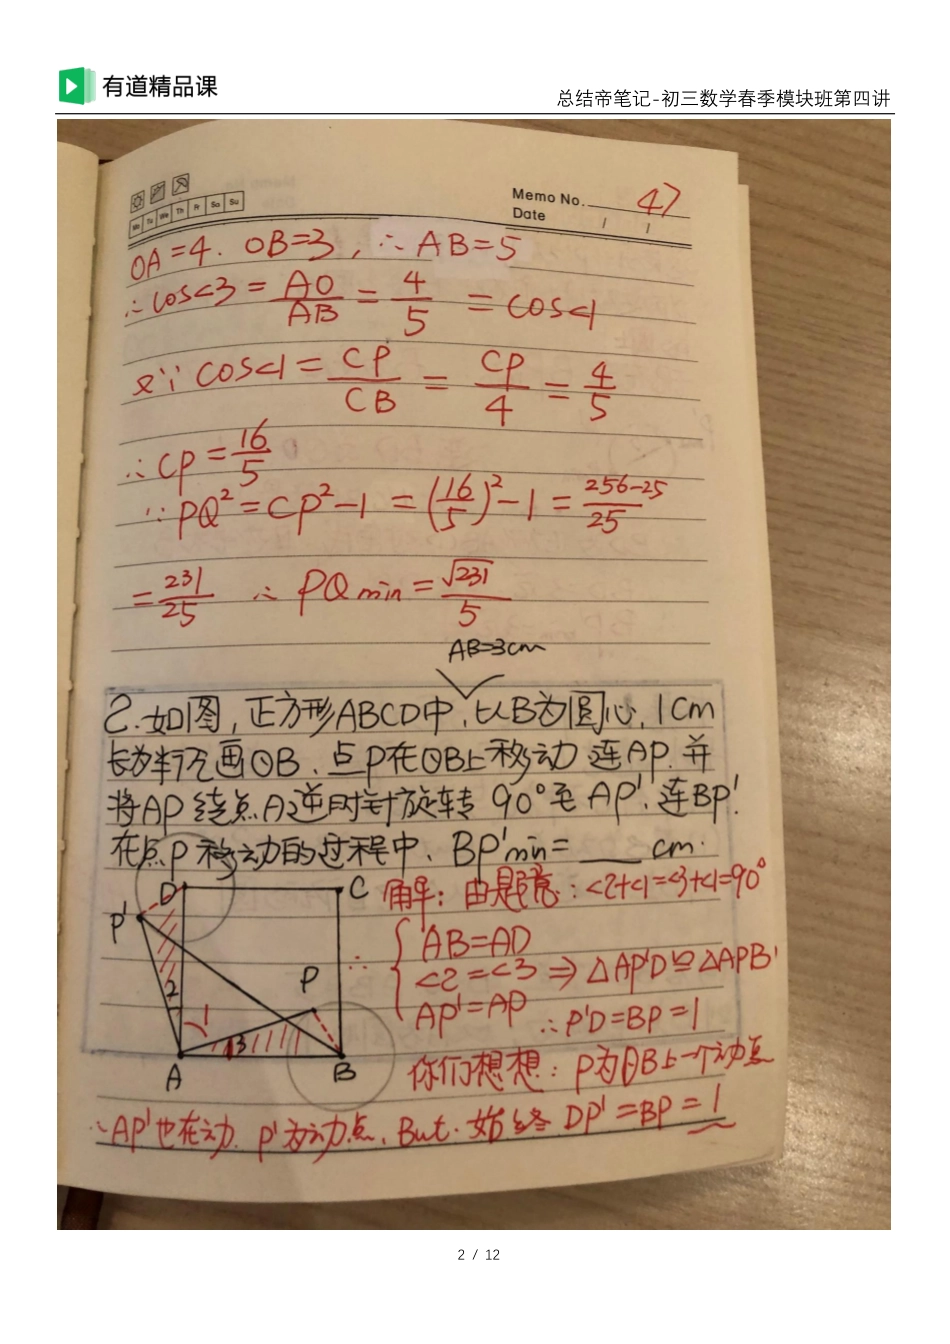 有道精品课
总结帝笔记-初三数学春季模块班第四讲
Memo No. 47
Mo Tu We Th Fr Sa Su
Date / /
OA=4. OB=3, ∴AB=5
∴cos<3 = AO/AB = 4/5 = cos<1
又∵cos<1 = CP/CB = CP/4 = 4/5
∴CP = 16/5
∵PQ²=CP²-1 = (16/5)²-1 = 256-25/25
= 231/25 ∴ PQmin = √231/5
AB=3cm
2.如图,正方形ABCD中,以B为圆心,1cm
长为半径画⊙B、点P在⊙B上移动 连AP.并
将AP绕点A逆时针旋转90°至AP'.连BP'.
在点P移动的过程中、BP'min=___cm.
D C 解:由题意:<2+<1=<3+<1=90°
P'
∴{AB=AD
<2=<3 ⇒ △AP'D≌△APB
AP'=AP ∴P'D=BP=1
P
2
1
3
A B 你们想想:P为⊙B上一个动点
∴AP'也在动.P'为动点.But.始终DP'=BP=1
2 / 12